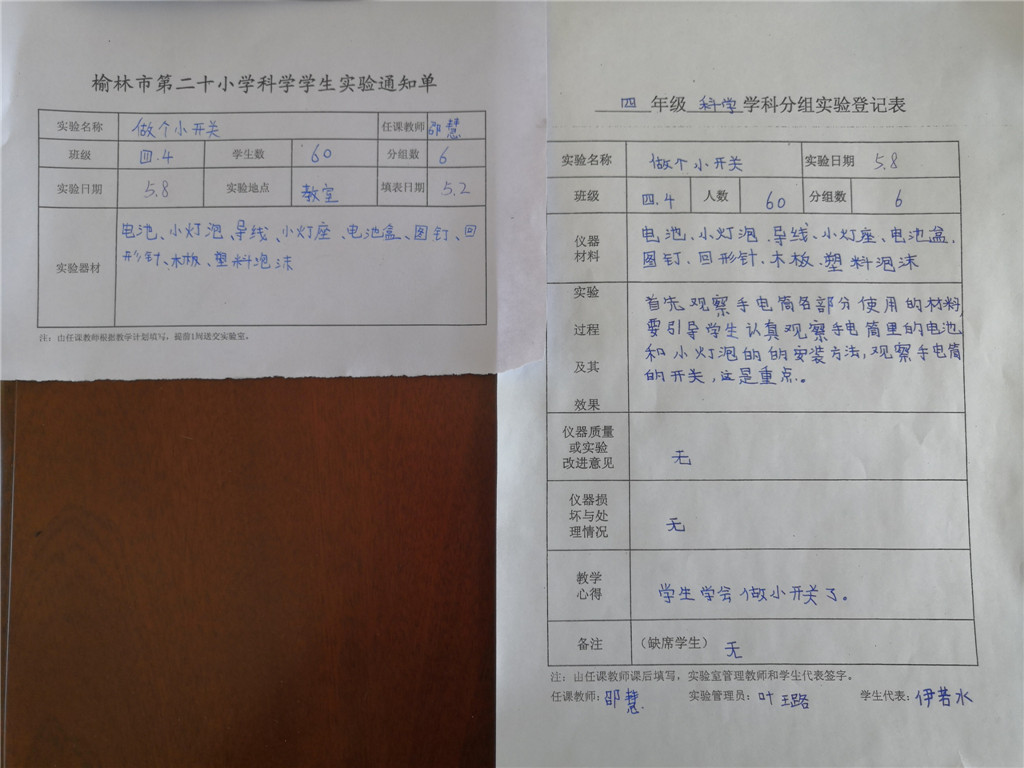 榆林市第二十小学科学学生实验通知单
实验名称 做个小开关 任课教师 邵慧
班级 四.4 学生数 60 分组数 6
实验日期 5.8 实验地点 教室 填表日期 5.2
实验器材
电池、小灯泡、导线、小灯座、电池盒、图钉、回
形针、木板、塑料泡沫
注：由任课教师根据教学计划填写，提前1周送交实验室。
四 年级 科学 学科分组实验登记表
实验名称 做个小开关 实验日期 5.8
班级 四.4 人数 60 分组数 6
仪器
材料
电池、小灯泡、导线、小灯座、电池盒、
图钉、回形针、木板、塑料泡沫
实验
过程
及其
效果
首先观察手电筒各部分使用的材料,
要引导学生认真观察手电筒里的电池
和小灯泡的的安装方法,观察手电筒
的开关,这是重点。
仪器质量
或实验
改进意见
无
仪器损
坏与处
理情况
无
教学
心得
学生学会做小开关了。
备注 （缺席学生） 无
注：由任课教师课后填写，实验室管理教师和学生代表签字。
任课教师：邵慧 实验管理员：叶璐 学生代表：伊若水